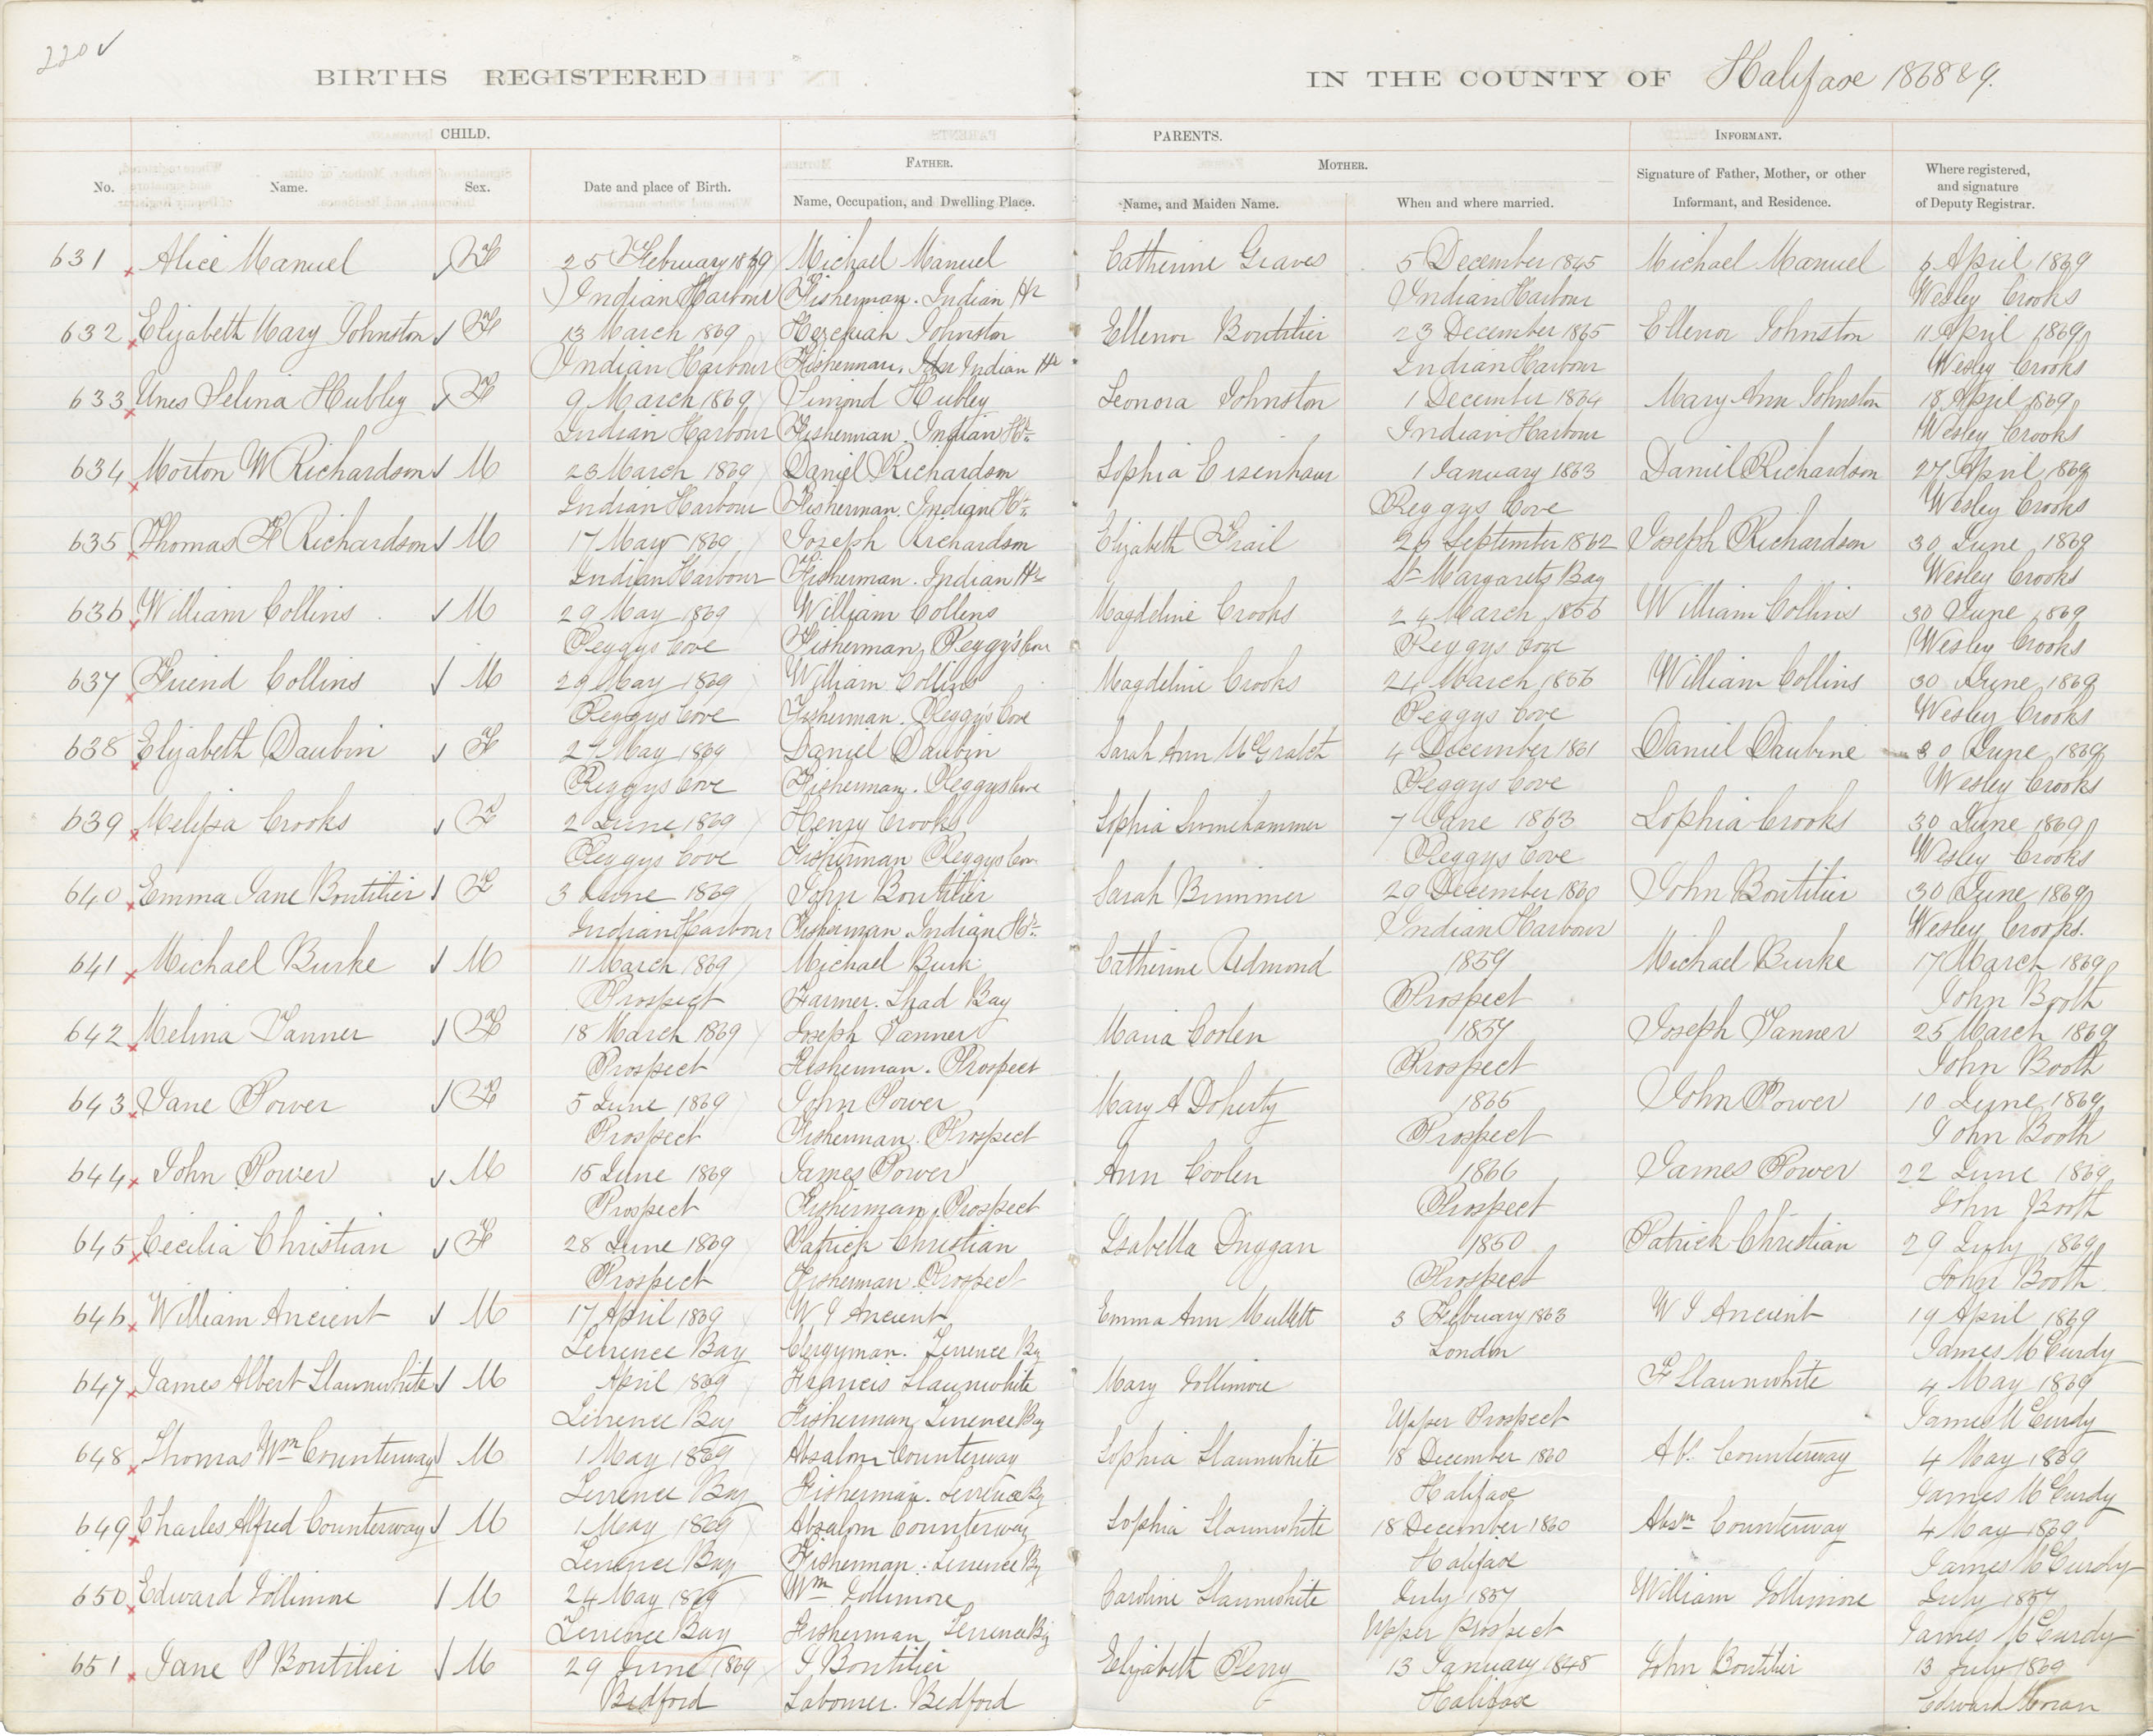 220 ✓
BIRTHS REGISTERED IN THE COUNTY OF Halifax 1868 & 9.
CHILD. PARENTS. INFORMANT.
FATHER. MOTHER.
No. Name. Sex. Date and place of Birth. Name, Occupation, and Dwelling Place. Name, and Maiden Name. When and where married. Signature of Father, Mother, or other Informant, and Residence. Where registered, and signature of Deputy Registrar.
631 Alice Manuel F 25 February 1869 Michael Manuel Catherine Graves 5 December 1845 Michael Manuel 6 April 1869
Indian Harbour Fisherman. Indian Hr Indian Harbour Wesley Crooks
632 Elizabeth Mary Johnston F 13 March 1869 Hezekiah Johnston Ellenor Boutilier 23 December 1865 Ellenor Johnston 11 April 1869
Indian Harbour Fisherman, Indian Hr Indian Harbour Wesley Crooks
633 Unes Selina Hubley F 9 March 1869 Simond Hubley Leonora Johnston 1 December 1864 Mary Ann Johnston 18 April 1869
Indian Harbour Fisherman. Indian Hr. Indian Harbour Wesley Crooks
634 Morton W Richardson M 23 March 1869 Daniel Richardson Sophia Eisenhaur 1 January 1863 Daniel Richardson 27 April 1869
Indian Harbour Fisherman. Indian Hr. Peggys Cove Wesley Crooks
635 Thomas F Richardson M 17 May 1869 Joseph Richardson Elizabeth Grail 26 September 1862 Joseph Richardson 30 June 1869
Indian Harbour Fisherman. Indian Hr St Margarets Bay Wesley Crooks
636 William Collins M 29 May 1869 William Collins Magdeline Crooks 24 March 1856 William Collins 30 June 1869
Peggys Cove Fisherman, Peggy's Cove Peggys Cove Wesley Crooks
637 Friend Collins M 29 May 1869 William Collins Magdeline Crooks 24 March 1856 William Collins 30 June 1869
Peggys Cove Fisherman. Peggy's Cove Peggys Cove Wesley Crooks
638 Elizabeth Daubin F 27 May 1869 Daniel Daubin Sarah Ann McGratch 4 December 1861 Daniel Daubine 30 June 1869
Peggys Cove Fisherman. Peggys Cove Peggys Cove Wesley Crooks
639 Melissa Crooks F 2 June 1869 Henry Crooks Sophia 7 June 1863 Sophia Crooks 30 June 1869
Peggys Cove Fisherman Peggys Cove Peggys Cove Wesley Crooks
640 Emma Jane Boutilier F 3 June 1869 John Boutilier Sarah Brimmer 29 December 1860 John Boutilier 30 June 1869
Indian Harbour Fisherman Indian Hr. Indian Harbour Wesley Crooks.
641 Michael Burke M 11 March 1869 Michael Burk Catherine Redmond 1859 Michael Burke 17 March 1869
Prospect Farmer. Shad Bay Prospect John Booth
642 Melina Tanner F 18 March 1869 Joseph Tanner Maria Coolen 1857 Joseph Tanner 25 March 1869
Prospect Fisherman. Prospect Prospect John Booth
643 Jane Power F 5 June 1869 John Power Mary A Doherty 1865 John Power 10 June 1869
Prospect Fisherman. Prospect Prospect John Booth
644 John Power M 15 June 1869 James Power Ann Coolen 1866 James Power 22 June 1869
Prospect Fisherman, Prospect Prospect John Booth
645 Cecilia Christian F 28 June 1869 Patrick Christian Isabella Duggan 1850 Patrick Christian 29 July 1869
Prospect Fisherman Prospect Prospect John Booth
646 William Ancient M 17 April 1869 W J Ancient Emma Ann Mullett 3 February 1863 W J Ancient 19 April 1869
Terrence Bay Clergyman. Terrence By London James McCurdy
647 James Albert Slaunwhite M April 1869 Francis Slaunwhite Mary Jollimore F Slaunwhite 4 May 1869
Terrence Bay Fisherman, Terrence Bay Upper Prospect James McCurdy
648 Thomas Wm Counterway M 1 May 1869 Absalom Counterway Sophia Slaunwhite 18 December 1860 Ab. Counterway 4 May 1869
Terrence Bay Fisherman. Terrence By Halifax James McCurdy
649 Charles Alfred Counterway M 1 May 1869 Absalom Counterway Sophia Slaunwhite 18 December 1860 Absm Counterway 4 May 1869
Terence Bay Fisherman. Terrence By Halifax James McCurdy
650 Edward Jollimore M 24 May 1869 Wm Jollimore Caroline Slaunwhite July 1857 William Jollimore July 1857
Terrence Bay Fisherman, Terrence By Upper Prospect James McCurdy
651 Jane P Boutilier M 29 June 1869 J Boutilier Elizabeth Perry 13 January 1848 John Boutilier 13 July 1869
Bedford Labourer. Bedford Halifax Edward Moran